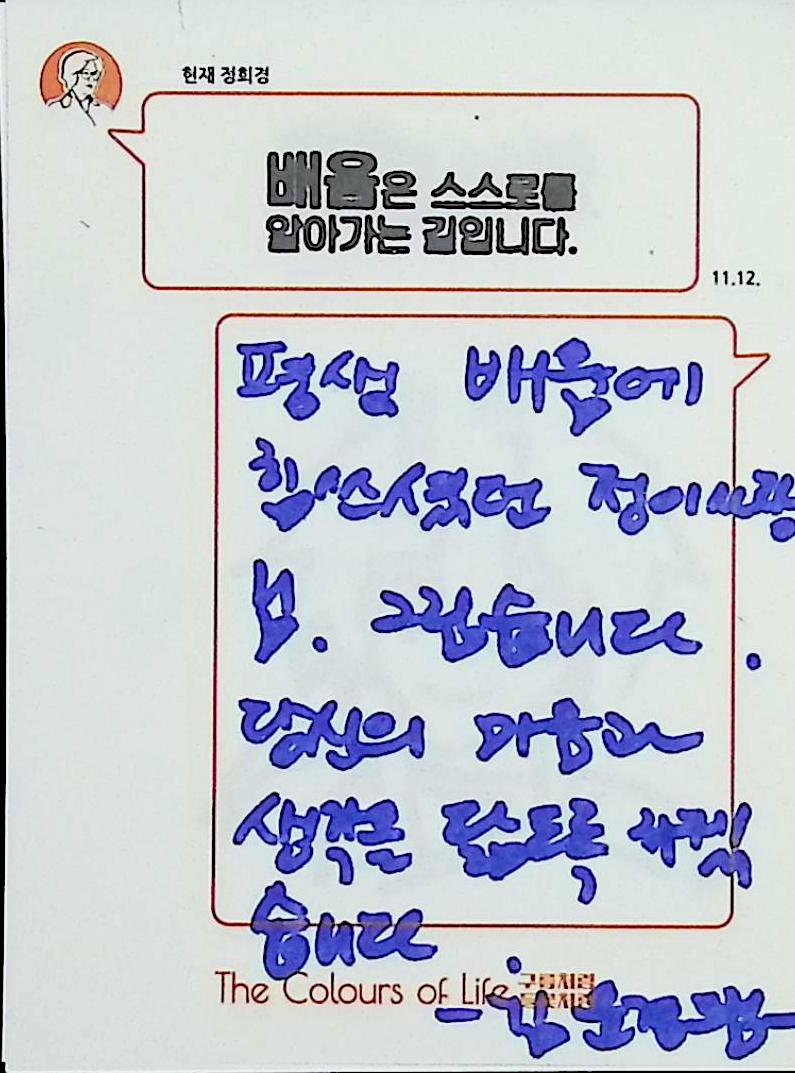 현재 정희경
배움은 스스로를
알아가는 길입니다.
11.12.
평생 배움에
힘쓰셨던 정이사장
님. 그립습니다.
당신의 마음과
생각을 닮도록 하겠
습니다.
The Colours of Life 구름처럼